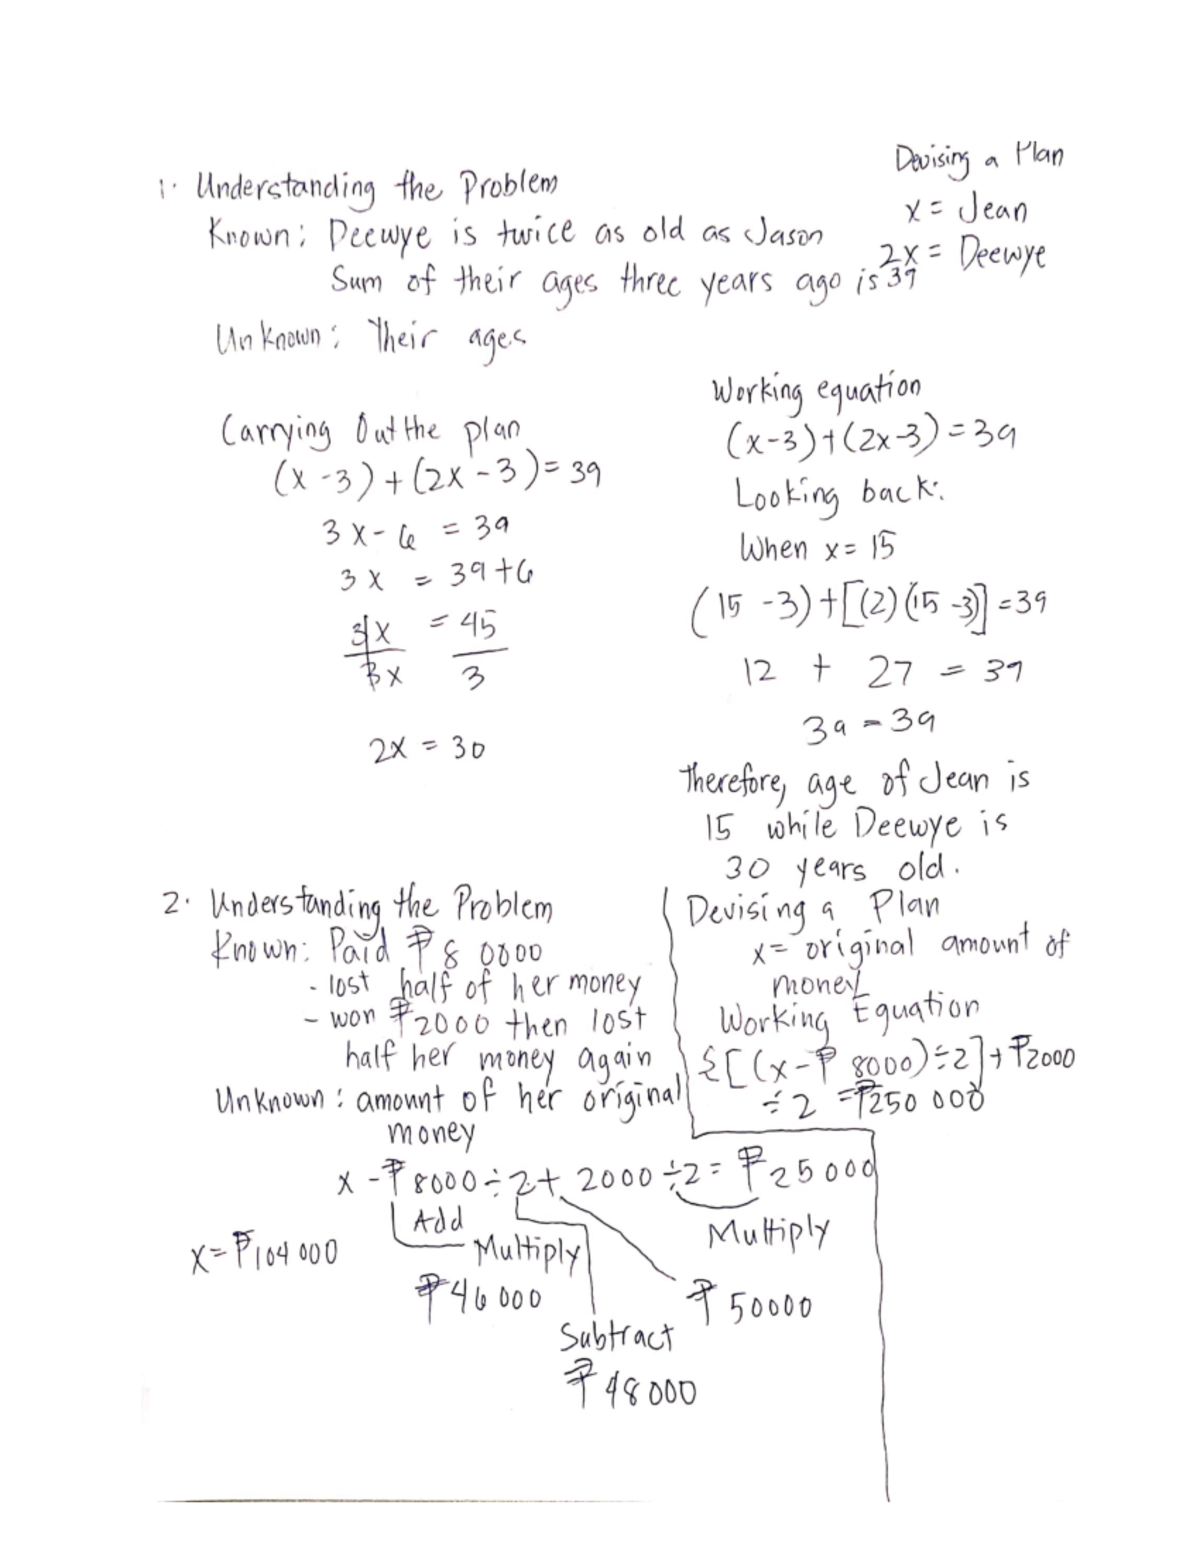 1. Understanding the Problem
Known: Deewye is twice as old as Jason
Sum of their ages three years ago is 39
Unknown: Their ages
Devising a Plan
x = Jean
2x = Deewye
Carrying Out the plan
(x -3) + (2x - 3) = 39
3x - 6 = 39
3x = 39 + 6
3x = 45
3x 3
2x = 30
Working equation
(x-3) + (2x-3) = 39
Looking back:
When x = 15
(15 -3) + [(2)(15 -3)] = 39
12 + 27 = 39
39 = 39
Therefore, age of Jean is
15 while Deewye is
30 years old.
2. Understanding the Problem
Known: Paid ₱8 0000
- lost half of her money
- won ₱2000 then lost
half her money again
Unknown: amount of her original
money
Devising a Plan
x = original amount of
money
Working Equation
{[(x-₱ 8000)÷2] + ₱2000
÷ 2 = ₱250 000
x - ₱8000 ÷ 2 + 2000 ÷ 2 = ₱25 000
Add
Multiply
Multiply
x = ₱104 000
₱46 000
₱50000
Subtract
₱48 000